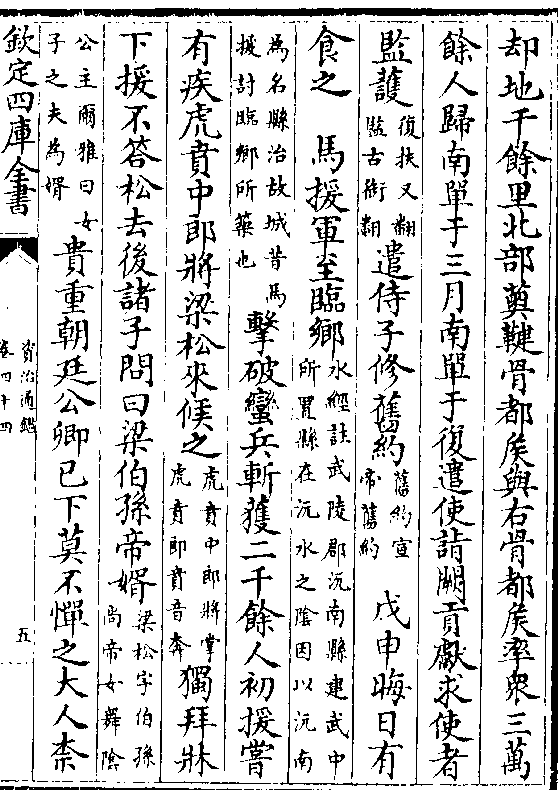 却地千餘里北部薁鞬骨都侯與右骨都侯率衆三萬
餘人歸南單于三月南單于復遣使詣闕貢獻求使者
監護復扶又翻監古銜翻遣侍子修舊約舊約宣帝舊約 戊申晦日有
食之 馬援軍至臨鄉水經註武陵郡沅南縣建武中所置縣在沅水之陰因以沅南
為名縣治故城昔馬援討臨鄉所築也擊破蠻兵斬獲二千餘人初援嘗
有疾虎賁中郎將梁松來候之虎賁中郎將掌虎賁郎賁音奔獨拜牀
下援不答松去後諸子問曰梁伯孫帝婿梁松字伯孫尚帝女舞陰
公主爾雅曰女子之夫為婿貴重朝廷公卿已下莫不憚之大人柰
欽定四庫全書
資治通鑑
卷四十四
五